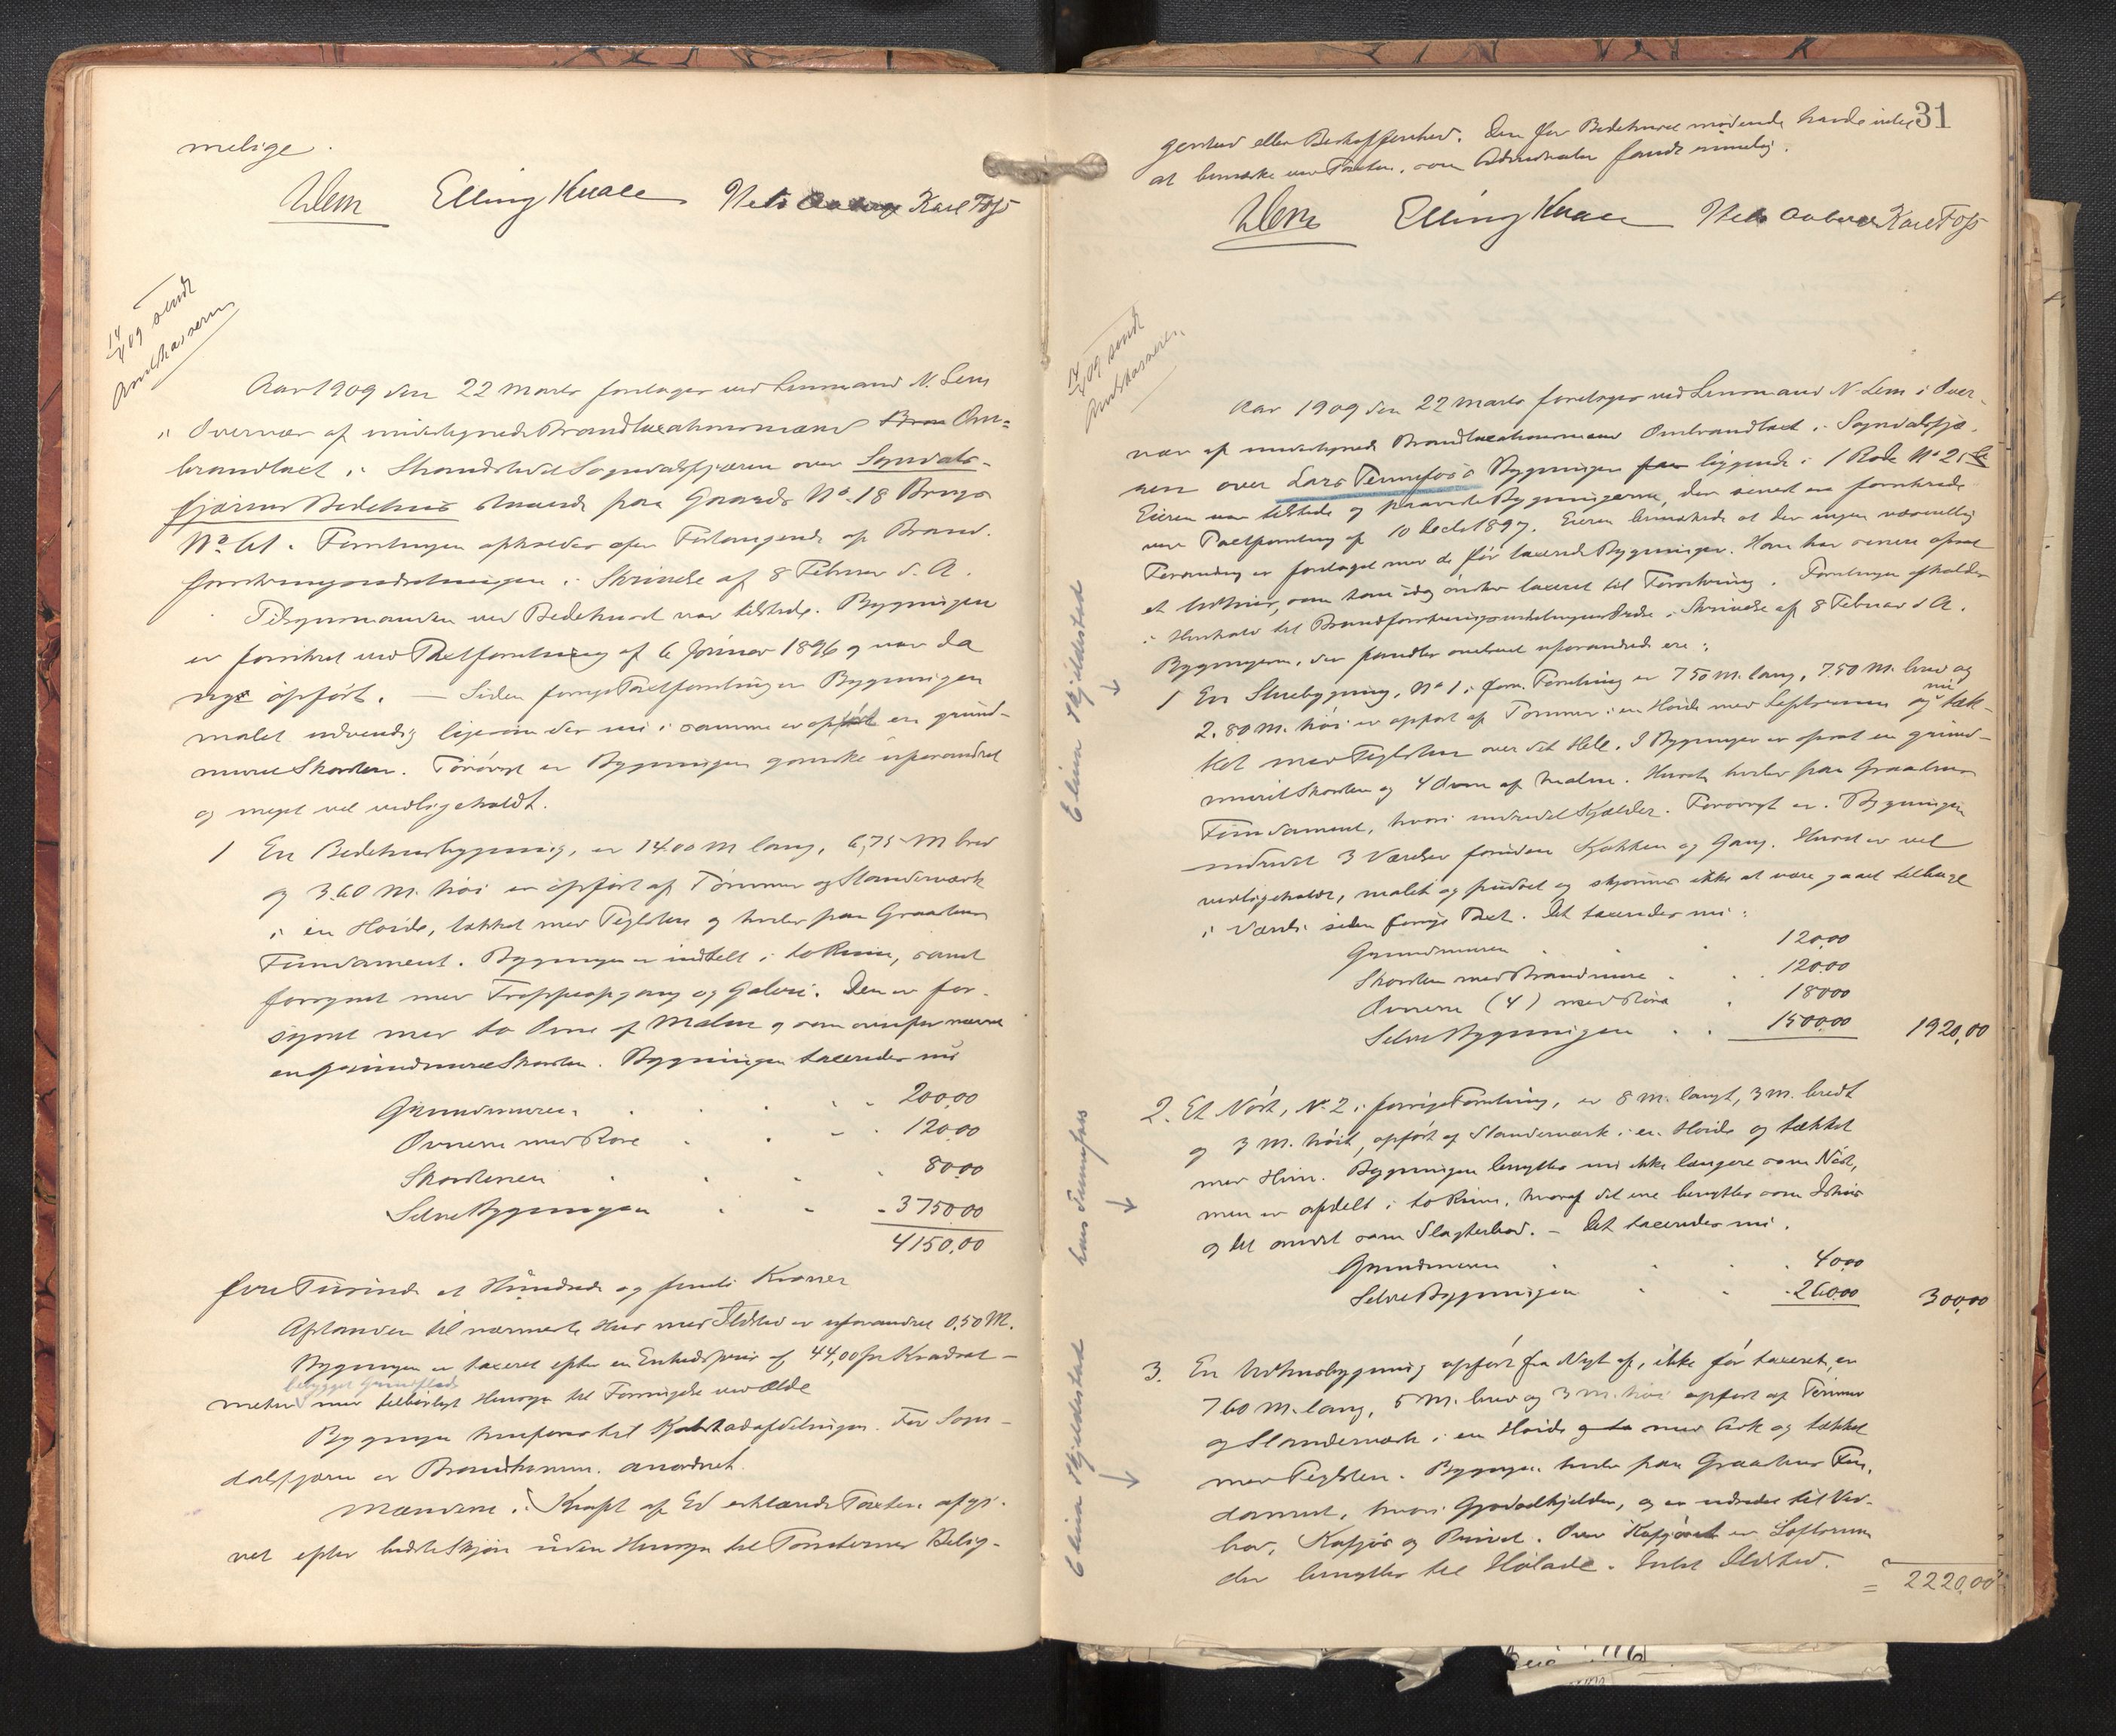 melige.
NLem Elling Kvale Nels Aaberge Karl Foss
14/4 09 sendt
Amtskasseren
Aar 1909 den 22 Marts foretages ved Lensmand N. Lem
i Overvær af undertegnede Brandtaxationsmænd Om-
brandtaxt i Strandstedet Sogndalsfjæren over Sogndals-
fjærens Bedehus staaende paa Gaards No. 18 Brugs
No 61. Forretningen afholdes efter Forlangende af Brand-
forsikringsindretningen i Skrivelse af 8 Februar d. A.
Tilsynsmanden ved Bedehuset var tilstede. Bygningen
er forsikret ved Taxtforretning af 6 Januar 1896 og var da
nys opført. — Siden forrige Taxtforretning er Bygningen
malet udvendig ligesom der nu i samme er opført en grund-
muret Skorsten. Forøvrigt er Bygningen ganske uforandret
og meget vel vedligeholdt.
1 En Bedehusbygning, er 14.00 M lang, 6,75 M bred
og 3.60 M. høi er opført af Tømmer og Standerværk
i en Høide, tækket med Teglsten og hviler paa Graastens
Fundament. Bygningen er inddelt i to Rum, samt
forsynet med Troppeopgang og Galeri. Den er for-
synet med to Ovne af Malm og som ovenfor nævnt
en grundmuret Skorsten. Bygningen taxeredes nu
Grundmuren . . . 200,00
Ovnene med Rør . . . 120,00
Skorstenen . . . 80,00
Selve Bygningen . . 3750,00
4150,00
fire Tusinde et Hundrede og femti Kroner
Afstanden til nærmeste Hus med Ildsted er uforandret 0,50 M.
Bygningen er taxeret efter en Enhedspris af 44,00 pr Kvadrat-
bebygget Grundflade
meter med tilbørligt Hensyn til Forringelse ved Ælde
Bygningen henføres til Kjøbstadafdelingen. For Sogn-
dalsfjæren er Brandkomm. anordnet.
Mændene i Kraft af Ed erklærede Taxten afgi-
vet efter bedste Skjøn uden Hensyn til Tomternes Belig-
31
genhed eller Beskaffenhed. Den for Bedehuset mødende havde intet
at bemærke ved Taxten, som Administrator fandt rimelig.
NLem Elling Kvale Nels Aaberge Karl Foss
14/4 09 sendt
Amtskasseren
Aar 1909 den 22 Marts foretoges ved Lensmand N. Lem i Over-
vær af undertegnede Brandtaxationsmænd Ombrandtaxt i Sogndalsfjæ-
ren over Lars Tennefoss's Bygninger liggende i 1 Rode No 21
Eieren var tilstede og paaviste Bygningerne, der senest er forsikrede
ved Taxtforretning af 10 Decbr 1897. Eieren bemærkede at der ingen væsentlig
Forandring er foretaget med de før taxerede Bygninger. Han har senere opsat
et Udhus, som han idag ønsker taxeret til Forsikring. Forretningen afholdes
i Henhold til Brandforsikringsindretningens Ordre i Skrivelse af 8 Februar d A.
Bygningerne, der fandtes omtrent uforandrede ere:
1 En Stuebygning, No 1 i forr. Forretning er 7.50 M. lang, 7.50 M. bred og
2.80 M. høi er opført af Tømmer i en Høide med Loftsrum og nu tæk-
ket med Teglsten over det Hele. I Bygningen er opsat en grund-
muret Skorsten og 4 Ovne af Malm. Huset hviler paa Graastens
Fundament, hvori indredet Kjælder. Forøvrigt er Bygningen
indredet 3 Værelser foruden Kjøkken og Gang. Huset er vel
vedligeholdt, malet og pudset og skjønnes ikke at være gaaet tilbage
i Værdi siden forrige Taxt. Det taxeredes nu:
Grundmuren . . . 120,00
Skorsten med Brandmure . . 120,00
Ovnene (4) med Rør . . 180,00
Selve Bygningen . . 1500,00 1920,00
2. Et Nøst, No 2 i forrige Forretning, er 8 M. langt, 3 M. bredt
og 3 M. høit, opført af Standerværk i en Høide og tækket
med Hun. Bygningen benyttes nu ikke længere som Nøst,
men er afdelt i to Rum, hvoraf det ene benyttes som Ishus
og det andet som Slagterbod. — Det taxeredes nu.
Grundmuren . . . 40,00
Selve Bygningen . . 260,00 300,00
3. En Udhusbygning opført fra Nyt af, ikke før taxeret, er
7.60 M. lang, 5 M. bred og 3 M. høi opført af Tømmer
og Standerværk i en Høide med Ark og tækket
med Teglsten. Bygningen hviler paa Graastens Fun-
dament, hvori Gjødselkjelder, og er indredet til Ved-
bod, Kufjøs og Privet. Over Kufjøset er Loftsrum
der benyttes til Hølade. Intet Ildsted.
= 2220,00
Elina Skjeldestad
Lars Tennefoss
Elina Skjeldestad